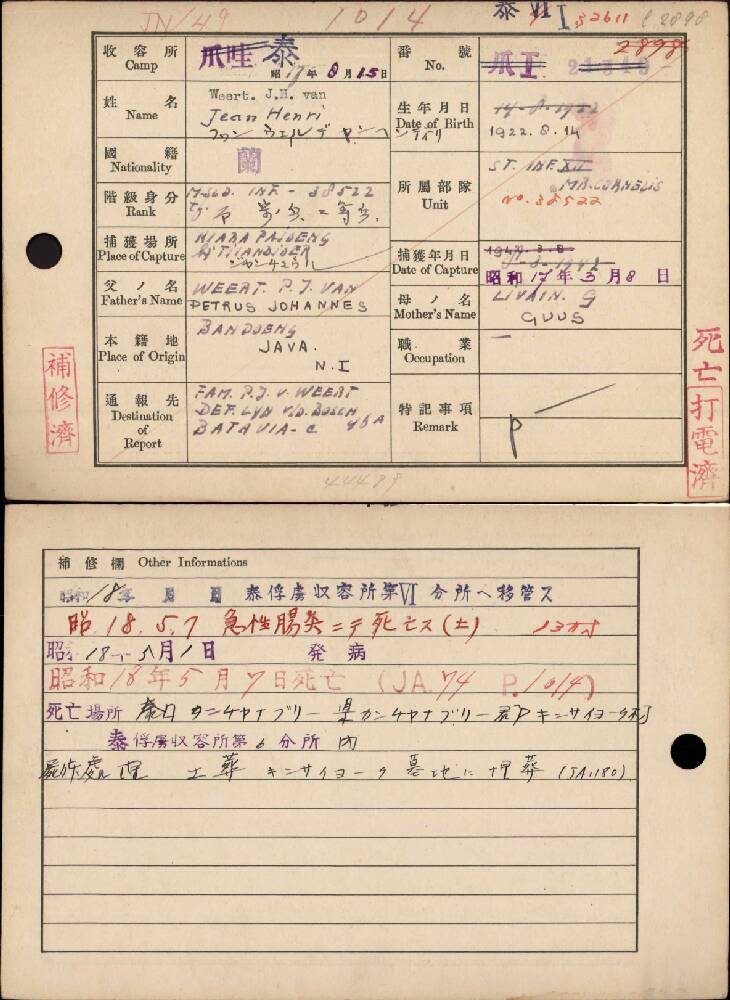 JN/49
1014
泰 VI I
52611
2898
2898
收容所 Camp
爪哇 泰
昭17年8月15日
番號 No.
爪I
姓名 Name
Weert. J.H. van
Jean Henri
ファン ウエルデ ヤン ヘンライ
生年月日 Date of Birth
14-8-1922
1922.8.14
國籍 Nationality
蘭
階級身分 Rank
INF - 38522
所屬部隊 Unit
ST. INF. XII
MR. CORNELIS
NO. 38522
捕獲場所 Place of Capture
TJIANDJOER
捕獲年月日 Date of Capture
昭和17年3月8日
父ノ名 Father's Name
WEERT. P.J. VAN
PETRUS JOHANNES
母ノ名 Mother's Name
LIVAIN. G
GUUS
本籍地 Place of Origin
BANDOENG
JAVA.
N.I
職業 Occupation
—
通報先 Destination of Report
FAM. P.J. V. WEERT
DEF. LYN V/D. BOSCH
BATAVIA-C 46A
特記事項 Remark
P
補修濟
死亡
打電濟
44489
補修欄 Other Informations
昭和18年 月 日 泰俘虜収容所第VI分所ヘ移管ス
昭18.5.7 急性腸炎ニテ死亡ス(土)
昭和18年5月1日 発病
昭和18年5月7日死亡 (JA.74 P.1014)
死亡場所
泰俘虜収容所第6分所内
土葬 キンサイヨーク墓地ニ埋葬 (JA.180)